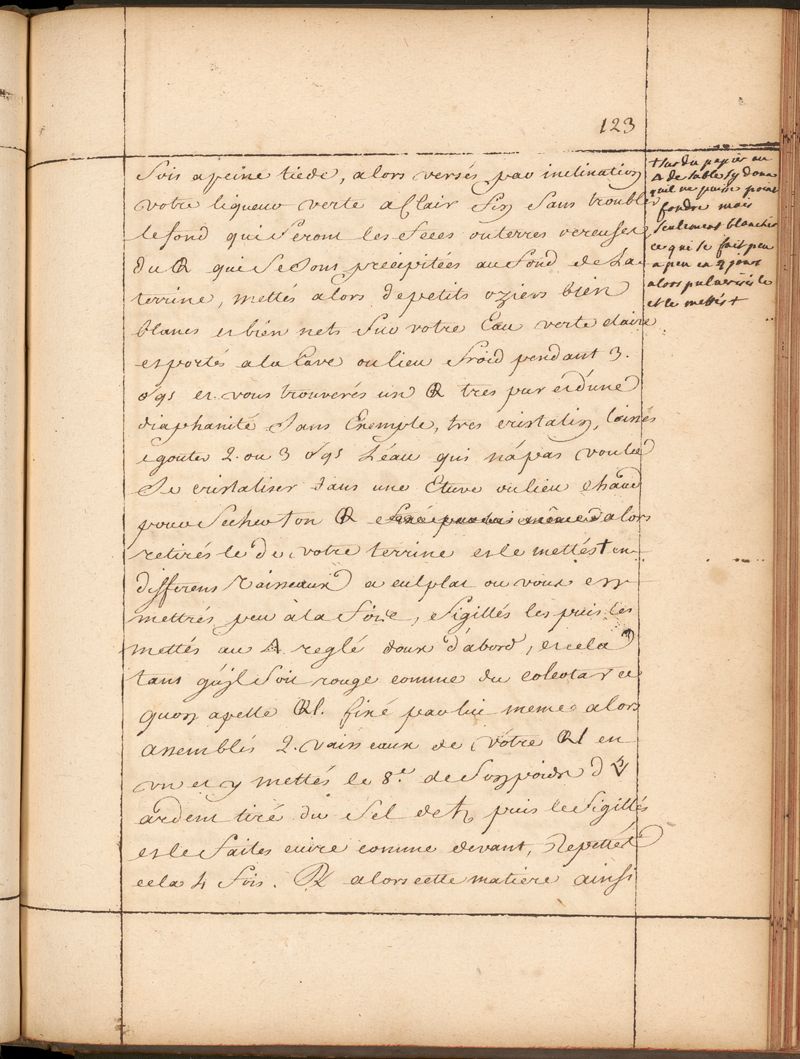 123
Sois apeine tiede, alors versés par inclination
votre liqueur verte aclair fin Sans troubler
lefond qui Seront les feces outerres vereuses
du qui Se Sont précipitées au fond de La
terrine, mettés alors depetits oziers bien
blancs et bien nets Sur votre Eau verte claire
et portés a la Cave ou lieu froid pendant 3.
et vous trouverés un tres pur et d'une
diaphanité Sans Exemple, tres cristalin, laissés
egouter 2. ou 3 L'eau qui n'a pas voulu
Se cristaliser dans une Etuve ou lieu chaud
pour Secher ton alors
retirés le de votre terrine et le mettés + en
differens vaisseaux a cul plat ou vous en
mettrés peu à la fois, Sigillés les puis les
mettés au △ reglé doux d'abord, et cela
tant qu'jl Soit rouge comme du colcotar ce
quon apelle fixé par lui meme alors
assemblés 2. vaisseaux de vôtre en
un et y mettés le 8.e de Son poids d
ardent tiré du Sel de ♄ puis le Sigillés
et le faites cuire comme devant, Repettés
cela 4 fois. alors cette matiere ainsi
+ sur du papier au
△ de sable sy doux
quil ne puisse point
fondre mais
seulement blanchir
ce qui se fait peu
a peu en 4 jours
alors pulverisés le
et le mettés +